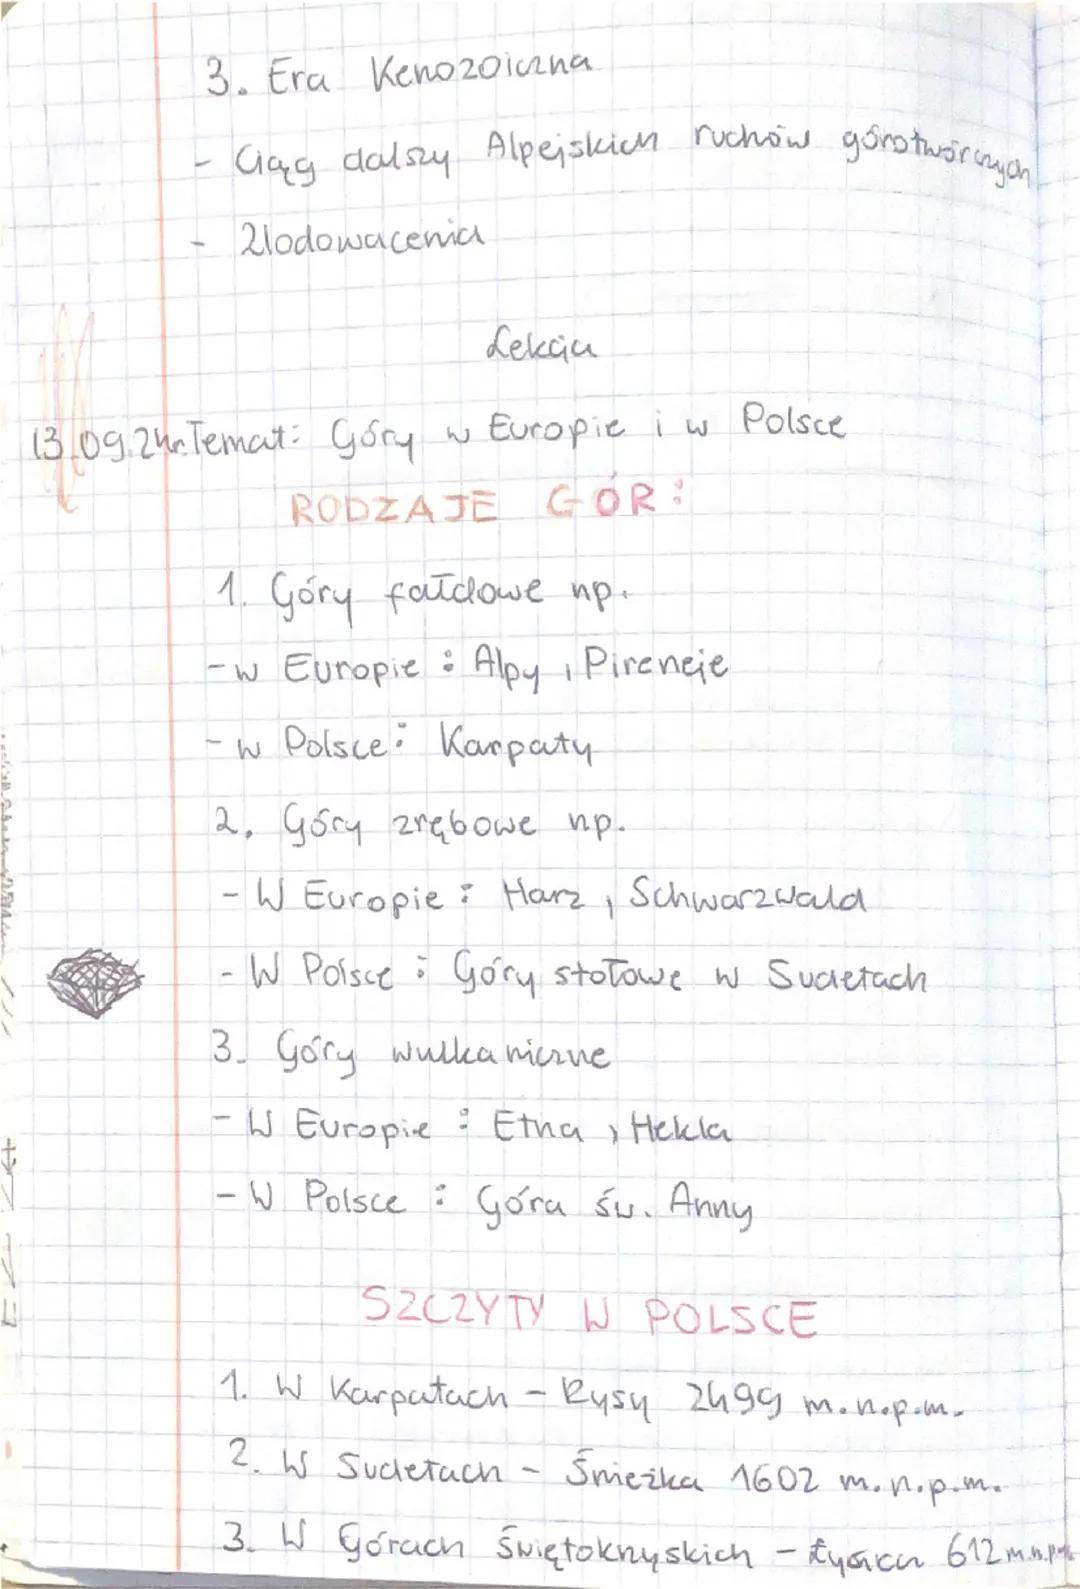 3. Era Kenozoiczna
- Ciąg dalszy Alpejskich ruchów górotwórczych
- Zlodowacenia
Lekcja
13.09.24r. Temat: Góry w Europie i w Polsce
RODZAJE GÓR:
1. Góry fałdowe np.
-w Europie: Alpy, Pireneje
-w Polsce: Karpaty
2. Góry zrębowe np.
- W Europie: Harz, Schwarzwald
- W Polsce: Góry stołowe w Sudetach
3. Góry wulkaniczne
- W Europie: Etna, Hekla
- W Polsce: Góra św. Anny
SZCZYTY W POLSCE
1. W Karpatach - Rysy 2499 m.n.p.m.
2. W Sudetach - Śnieżka 1602 m.n.p.m.
3. W Górach Świętokrzyskich - Łysica 612 m.n.p.m.